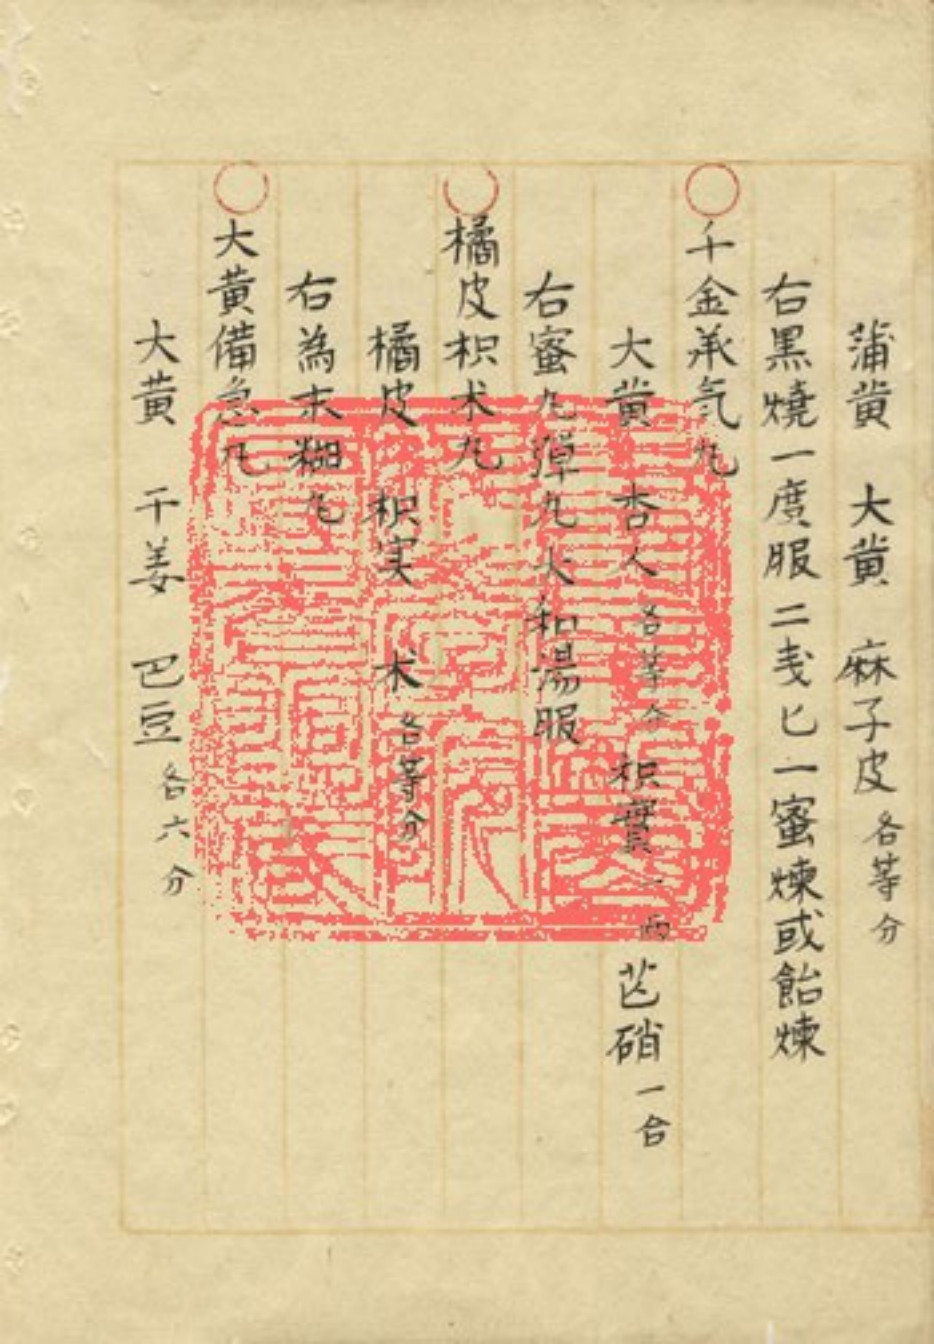 蒲黄 大黄 麻子皮 各等分
右黒燒一度服二戔匕一蜜煉或飴煉
千金承気丸
大黄 杏人 各等分 枳實 一両 芒硝 一合
右蜜丸弾丸大和湯服
橘皮枳朮丸
橘皮 枳実 朮 各等分
右為末糊丸
大黄備急丸
大黄 干姜 巴豆 各六分